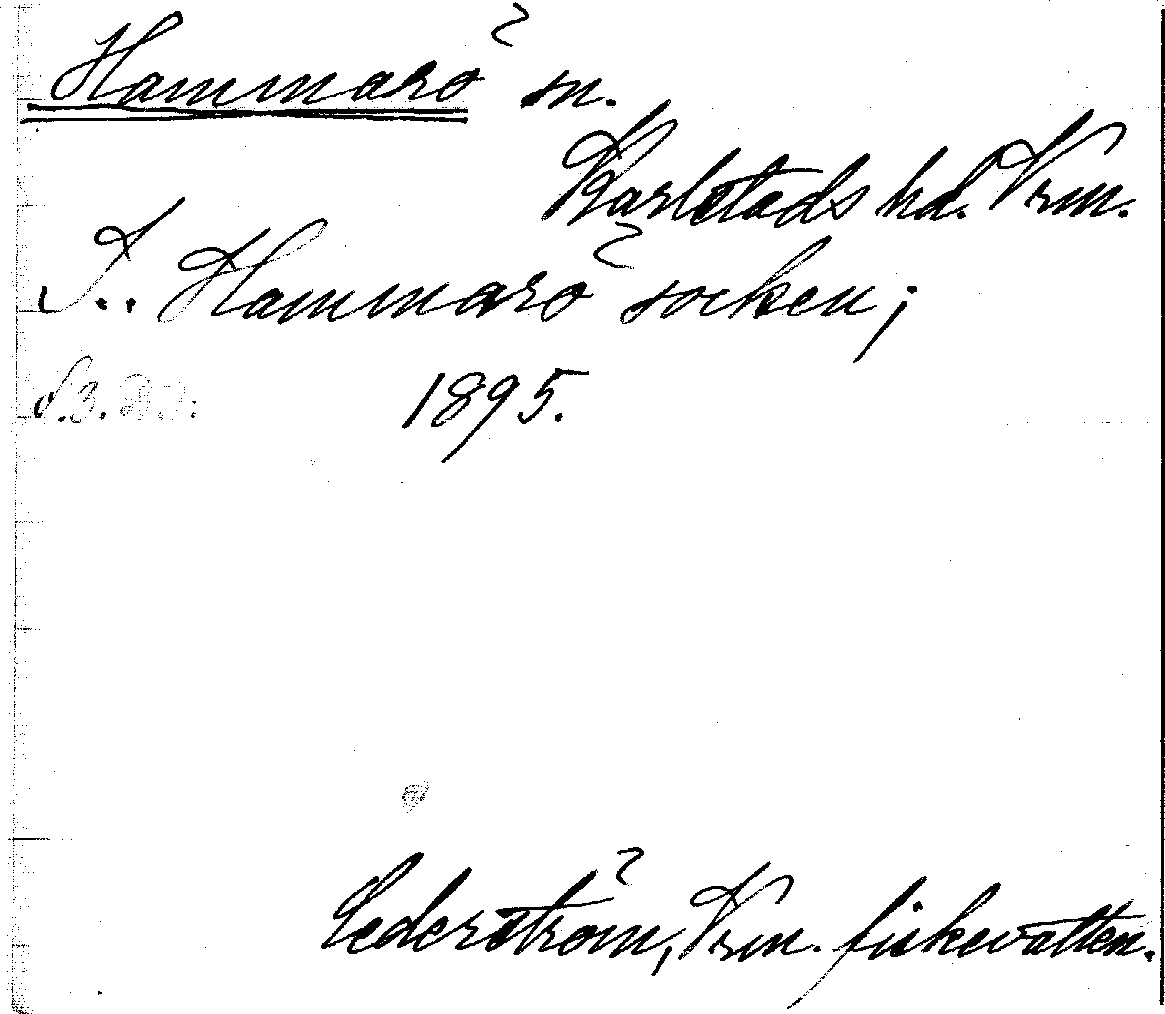 Hammarö sn.
Karlstads hd. Vrm.
I.. Hammarö socken;
1895.
Cederström, Vrm. fiskevatten.